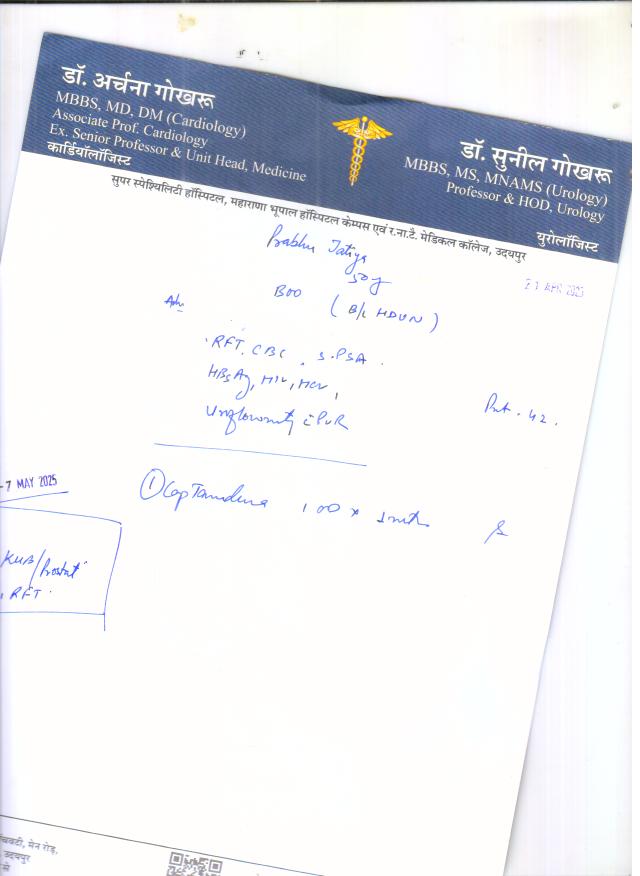 डॉ. अर्चना गोखरू
MBBS, MD, DM (Cardiology)
Associate Prof. Cardiology
Ex. Senior Professor & Unit Head, Medicine
कार्डियॉलॉजिस्ट
डॉ. सुनील गोखरू
MBBS, MS, MNAMS (Urology)
Professor & HOD, Urology
युरोलॉजिस्ट
सुपर स्पेश्यिलिटी हॉस्पिटल, महाराणा भूपाल हॉस्पिटल केम्पस एवं र.ना.टै. मेडिकल कॉलेज, उदयपुर
Prabhu
50y
APR 2025
BOO (B/L HDUN)
Adv
RFT, CBC, S.PSA.
HBsAg, HIV, HCV,
Uroflowmetry c̄ PVR
42.
-7 MAY 2025
① Cap 1 OD x 1 month
KUB/Prostate
RFT.
मेन रोड,
उदयपुर